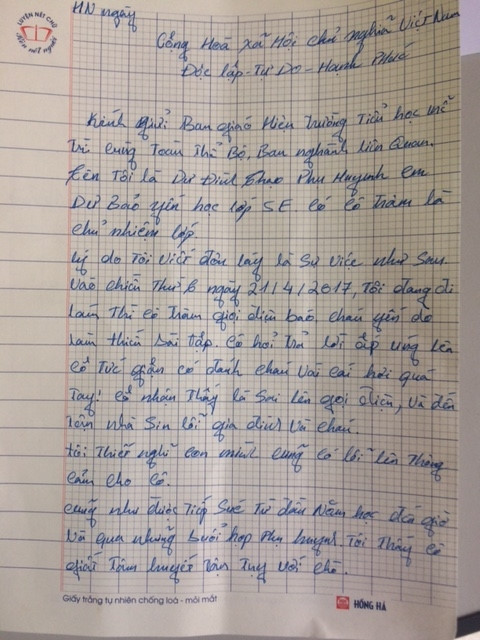 LUYỆN NÉT CHỮ
HN ngày
Cộng Hoà Xã Hội chủ nghĩa Việt Nam
Độc lập - Tự Do - Hạnh Phúc
Kính gửi Ban giáo Hiệu Trường Tiểu học mễ
Trì cùng Toàn Thể Bộ, Ban nghành liên Quan.
Tên Tôi là Dư Đình Thao Phụ Huynh em
Dư Bảo yến học lớp 5E. có cô Trâm là
chủ nhiệm lớp
lý do Tôi viết đơn này là Sự việc như Sau.
vào chiều Thứ 6 ngày 21/4/2017, Tôi đang đi
làm Thì cô Trâm gọi điện báo cháu yến do
làm thiếu bài tập. cô hỏi Trả lời ấp úng lên
cô Tức giận có đánh cháu vài cái hơi quá
Tay! cô nhận Thấy là Sai lên gọi điện, và đến
tận nhà Sin lỗi gia đình và cháu.
tôi Thiết nghĩ con mình cũng có lỗi lên Thông
cảm cho cô.
cũng như được Tiếp Súc Từ đầu Năm học đến giờ
và qua những buổi họp phụ huynh. Tôi Thấy cô
giất Tâm huyết tận Tụy với
Giấy trắng tự nhiên chống loá - mỏi mắt
HỒNG HÀ